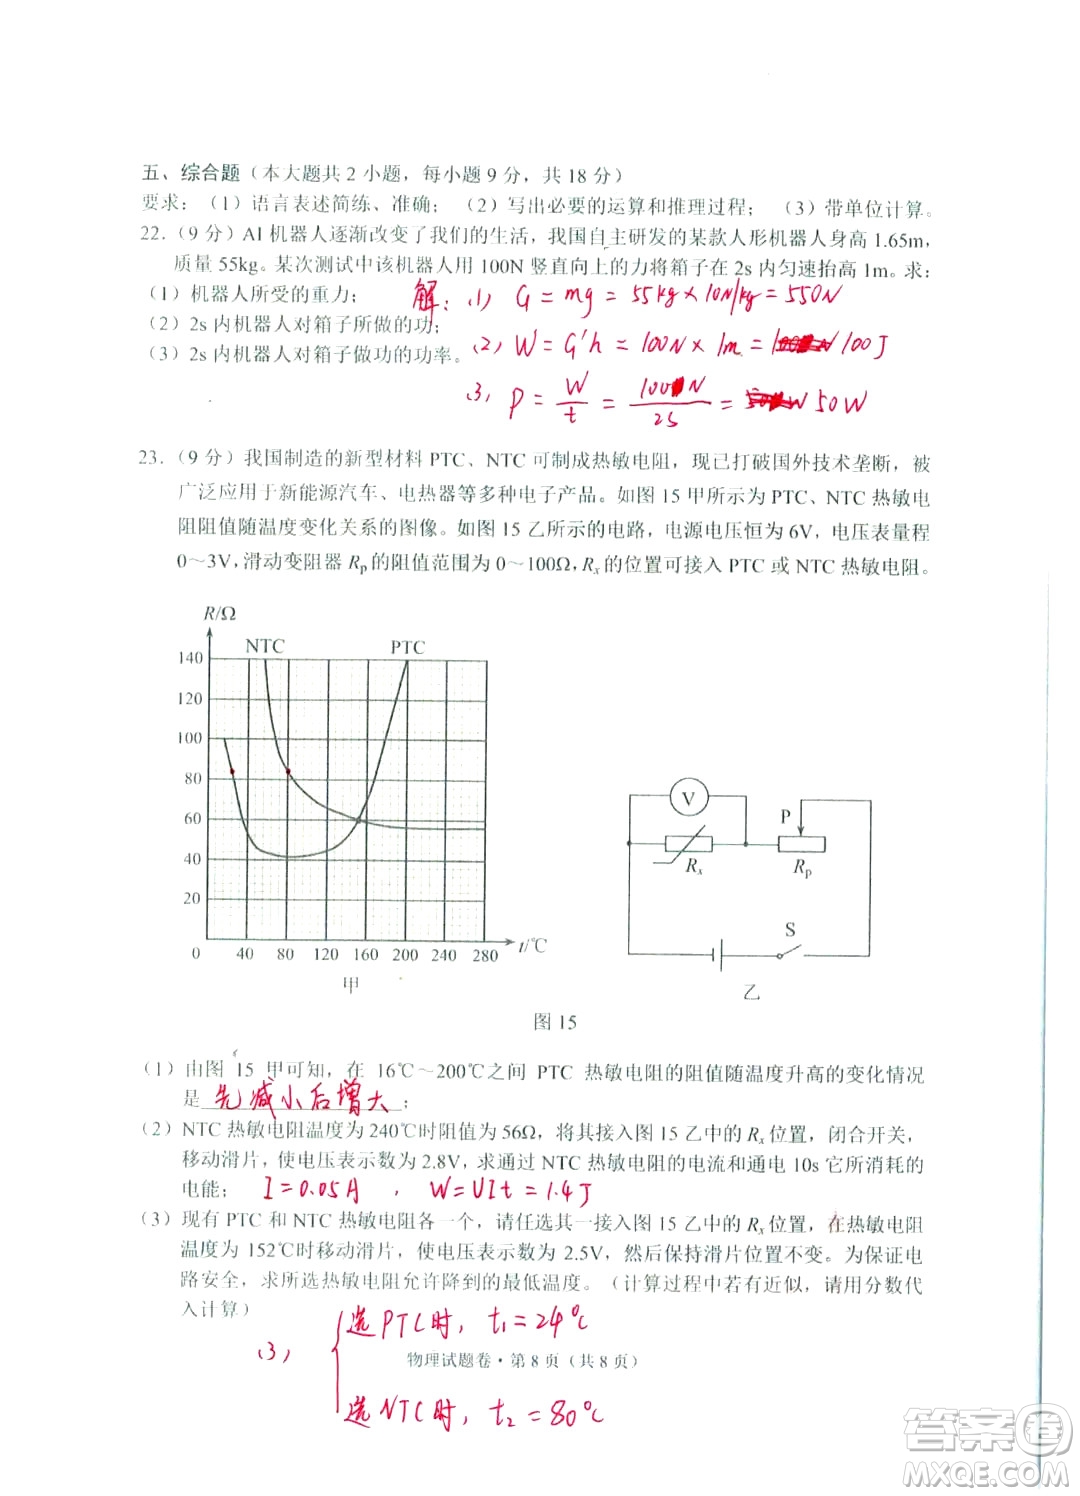 五、综合题（本大题共 2 小题，每小题 9 分，共 18 分）
要求：（1）语言表述简练、准确；（2）写出必要的运算和推理过程；（3）带单位计算。
22.（9 分）AI 机器人逐渐改变了我们的生活，我国自主研发的某款人形机器人身高 1.65m，
质量 55kg。某次测试中该机器人用 100N 竖直向上的力将箱子在 2s 内匀速抬高 1m。求：
（1）机器人所受的重力；
解：(1) G = mg = 55kg × 10N/kg = 550N
（2）2s 内机器人对箱子所做的功；
(2) W = G'h = 100N × 1m = 100J
（3）2s 内机器人对箱子做功的功率。
(3) P = W/t = 100N/2s = 50W
23.（9 分）我国制造的新型材料 PTC、NTC 可制成热敏电阻，现已打破国外技术垄断，被
广泛应用于新能源汽车、电热器等多种电子产品。如图 15 甲所示为 PTC、NTC 热敏电
阻阻值随温度变化关系的图像。如图 15 乙所示的电路，电源电压恒为 6V，电压表量程
0～3V，滑动变阻器 Rp 的阻值范围为 0～100Ω，Rx 的位置可接入 PTC 或 NTC 热敏电阻。
R/Ω
NTC PTC
140
120
100
80
60
40
20
0 40 80 120 160 200 240 280 t/℃
甲
V
P
Rx Rp
S
乙
图 15
（1）由图 15 甲可知，在 16℃～200℃之间 PTC 热敏电阻的阻值随温度升高的变化情况
是 先减小后增大 ；
（2）NTC 热敏电阻温度为 240℃时阻值为 56Ω，将其接入图 15 乙中的 Rx 位置，闭合开关，
移动滑片，使电压表示数为 2.8V，求通过 NTC 热敏电阻的电流和通电 10s 它所消耗的
电能； I = 0.05A , W = UIt = 1.4J
（3）现有 PTC 和 NTC 热敏电阻各一个，请任选其一接入图 15 乙中的 Rx 位置，在热敏电阻
温度为 152℃时移动滑片，使电压表示数为 2.5V，然后保持滑片位置不变。为保证电
路安全，求所选热敏电阻允许降到的最低温度。（计算过程中若有近似，请用分数代
入计算）
(3)
选PTC时，t₁ = 24℃
物理试题卷·第 8 页（共 8 页）
选NTC时，t₂ = 80℃
答案卷
MXQE.COM